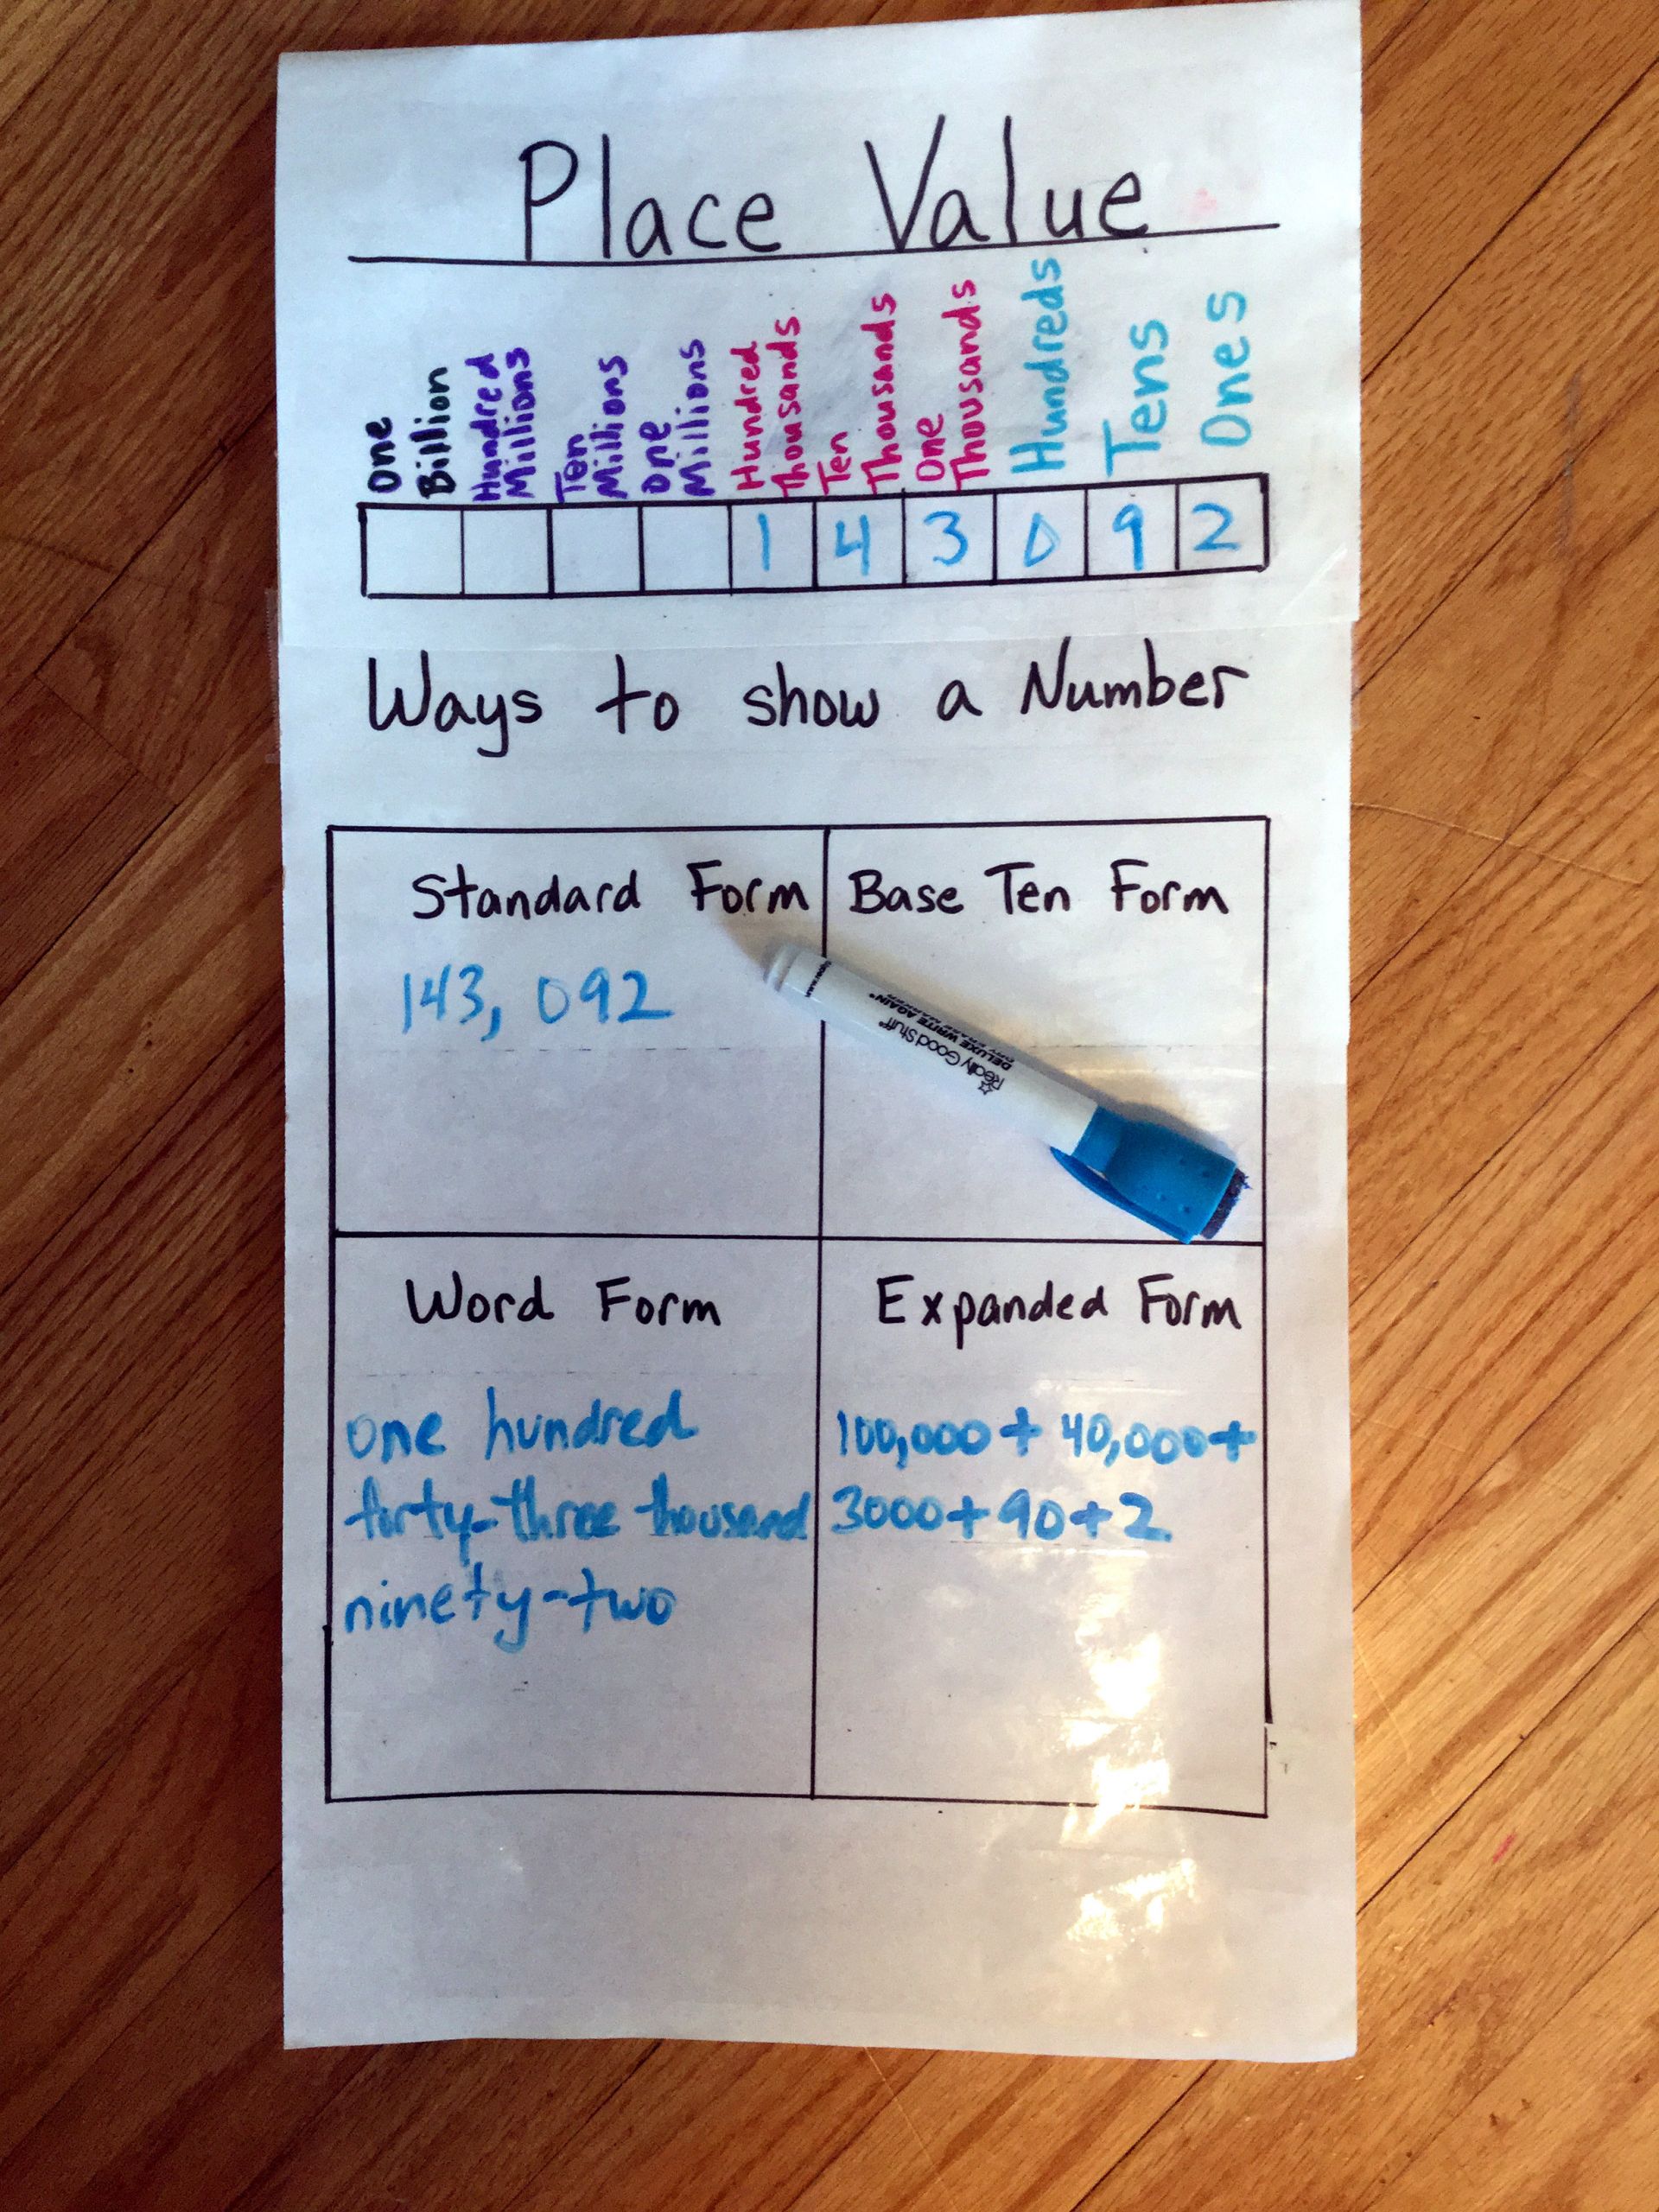 Place Value
One Billion
Hundred Millions
Ten Millions
One Millions
Hundred Thousands
Ten Thousands
One Thousands
Hundreds
Tens
Ones
1 4 3 0 9 2
Ways to show a Number
Standard Form
143, 092
Base Ten Form
Really Good Stuff®
DELUXE WRITE AGAIN®
DRY ERASE MARKER
Word Form
one hundred
forty-three thousand
ninety-two
Expanded Form
100,000 + 40,000+
3000+90+2